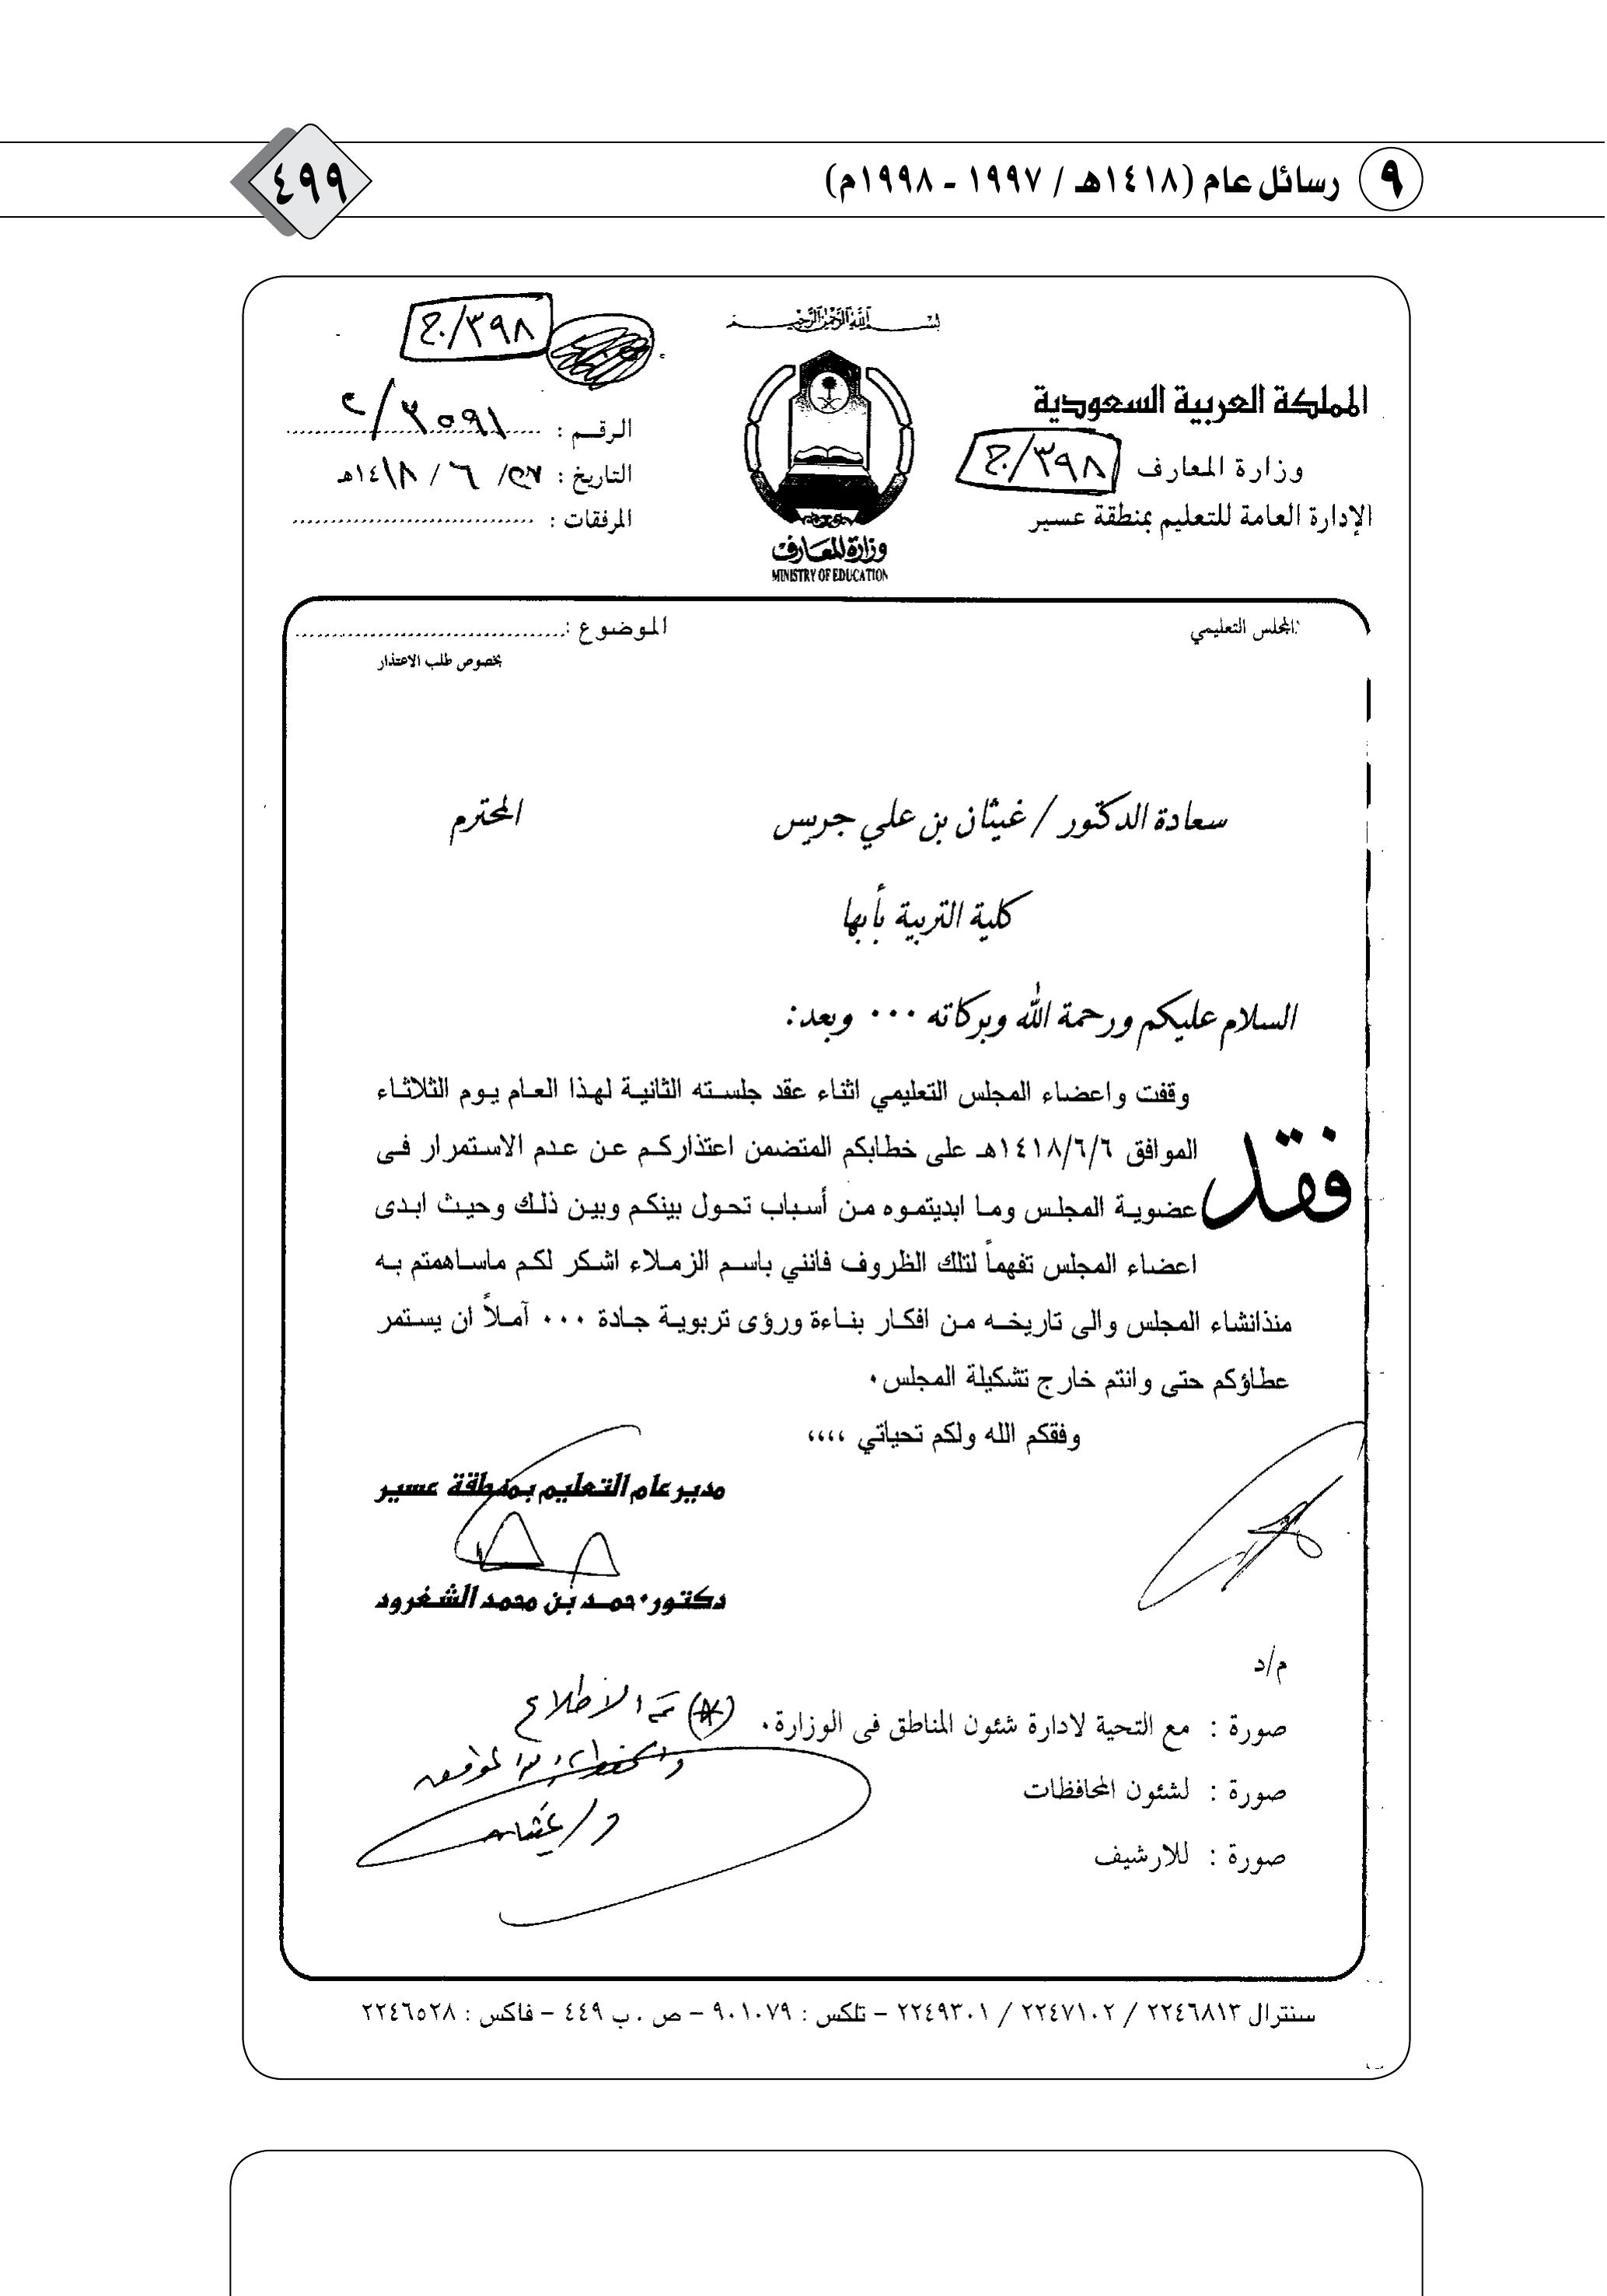 ٩ رسائل عام (١٤١٨هـ / ١٩٩٧ - ١٩٩٨م)
٤٩٩
بسم الله الرحمن الرحيم
ج/٣٩٨
المملكة العربية السعودية
وزارة المعارف
ج/٣٩٨
الإدارة العامة للتعليم بمنطقة عسير
وزارة المعارف
MINISTRY OF EDUCATION
الرقـم :
التاريخ : ٢٧/ ٦ / ١٤١٨هـ
المرفقات :
المجلس التعليمي
الموضوع :
بخصوص طلب الاعتذار
سعادة الدكتور / غيثان بن علي جريس المحترم
كلية التربية بأبها
السلام عليكم ورحمة الله وبركاته ٠٠٠ وبعد:
فقد وقفت واعضاء المجلس التعليمي اثناء عقد جلسته الثانية لهذا العام يوم الثلاثاء
الموافق ١٤١٨/٦/٦هـ على خطابكم المتضمن اعتذاركم عن عدم الاستمرار فى
عضوية المجلس وما ابديتموه من أسباب تحول بينكم وبين ذلك وحيث ابدى
اعضاء المجلس تفهماً لتلك الظروف فانني باسم الزملاء اشكر لكم ماساهمتم به
منذانشاء المجلس والى تاريخه من افكار بناءة ورؤى تربوية جادة ٠٠٠ آملاً ان يستمر
عطاؤكم حتى وانتم خارج تشكيلة المجلس٠
وفقكم الله ولكم تحياتي ،،،،
مدير عام التعليم بمنطقة عسير
دكتور٠حمد بن محمد الشغرود
م/د
صورة : مع التحية لادارة شئون المناطق فى الوزارة٠
صورة : لشئون المحافظات
صورة : للارشيف
(*) تم الاطلاع
د/غيثان
سنترال ٢٢٤٦٨١٣ / ٢٢٤٧١٠٢ / ٢٢٤٩٣٠١ – تلكس : ٩٠١٠٧٩ – ص . ب ٤٤٩ – فاكس : ٢٢٤٦٥٢٨